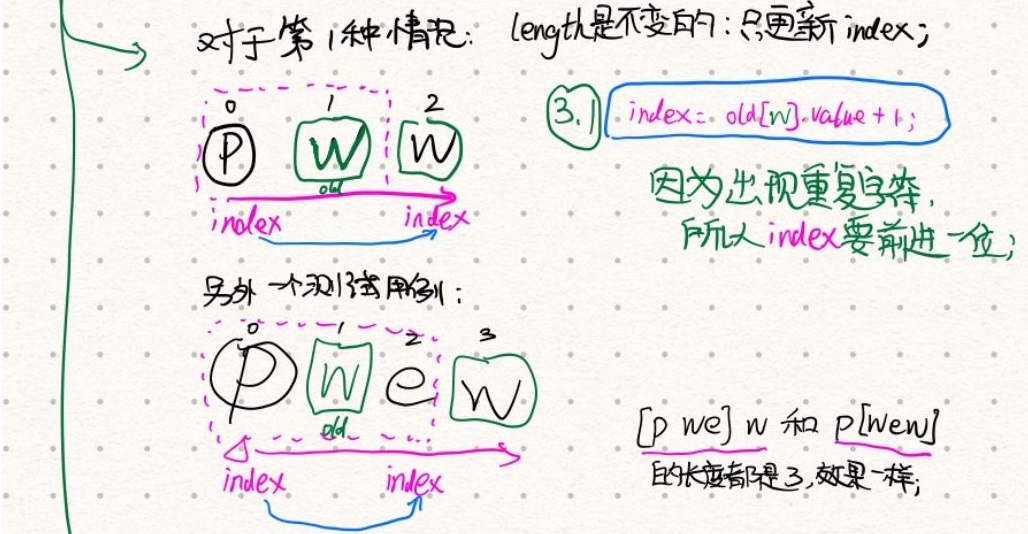 对于第1种情况: length是不变的:只更新index;
0 1 2
P W W
old
index index
3.1 index = old[w].value+1;
因为出现重复字符,
所以index要前进一位;
另外一个测试用例:
0 1 2 3
P W e W
old
index index
[p we] w 和 p[wew]
的长度都是3,效果一样;